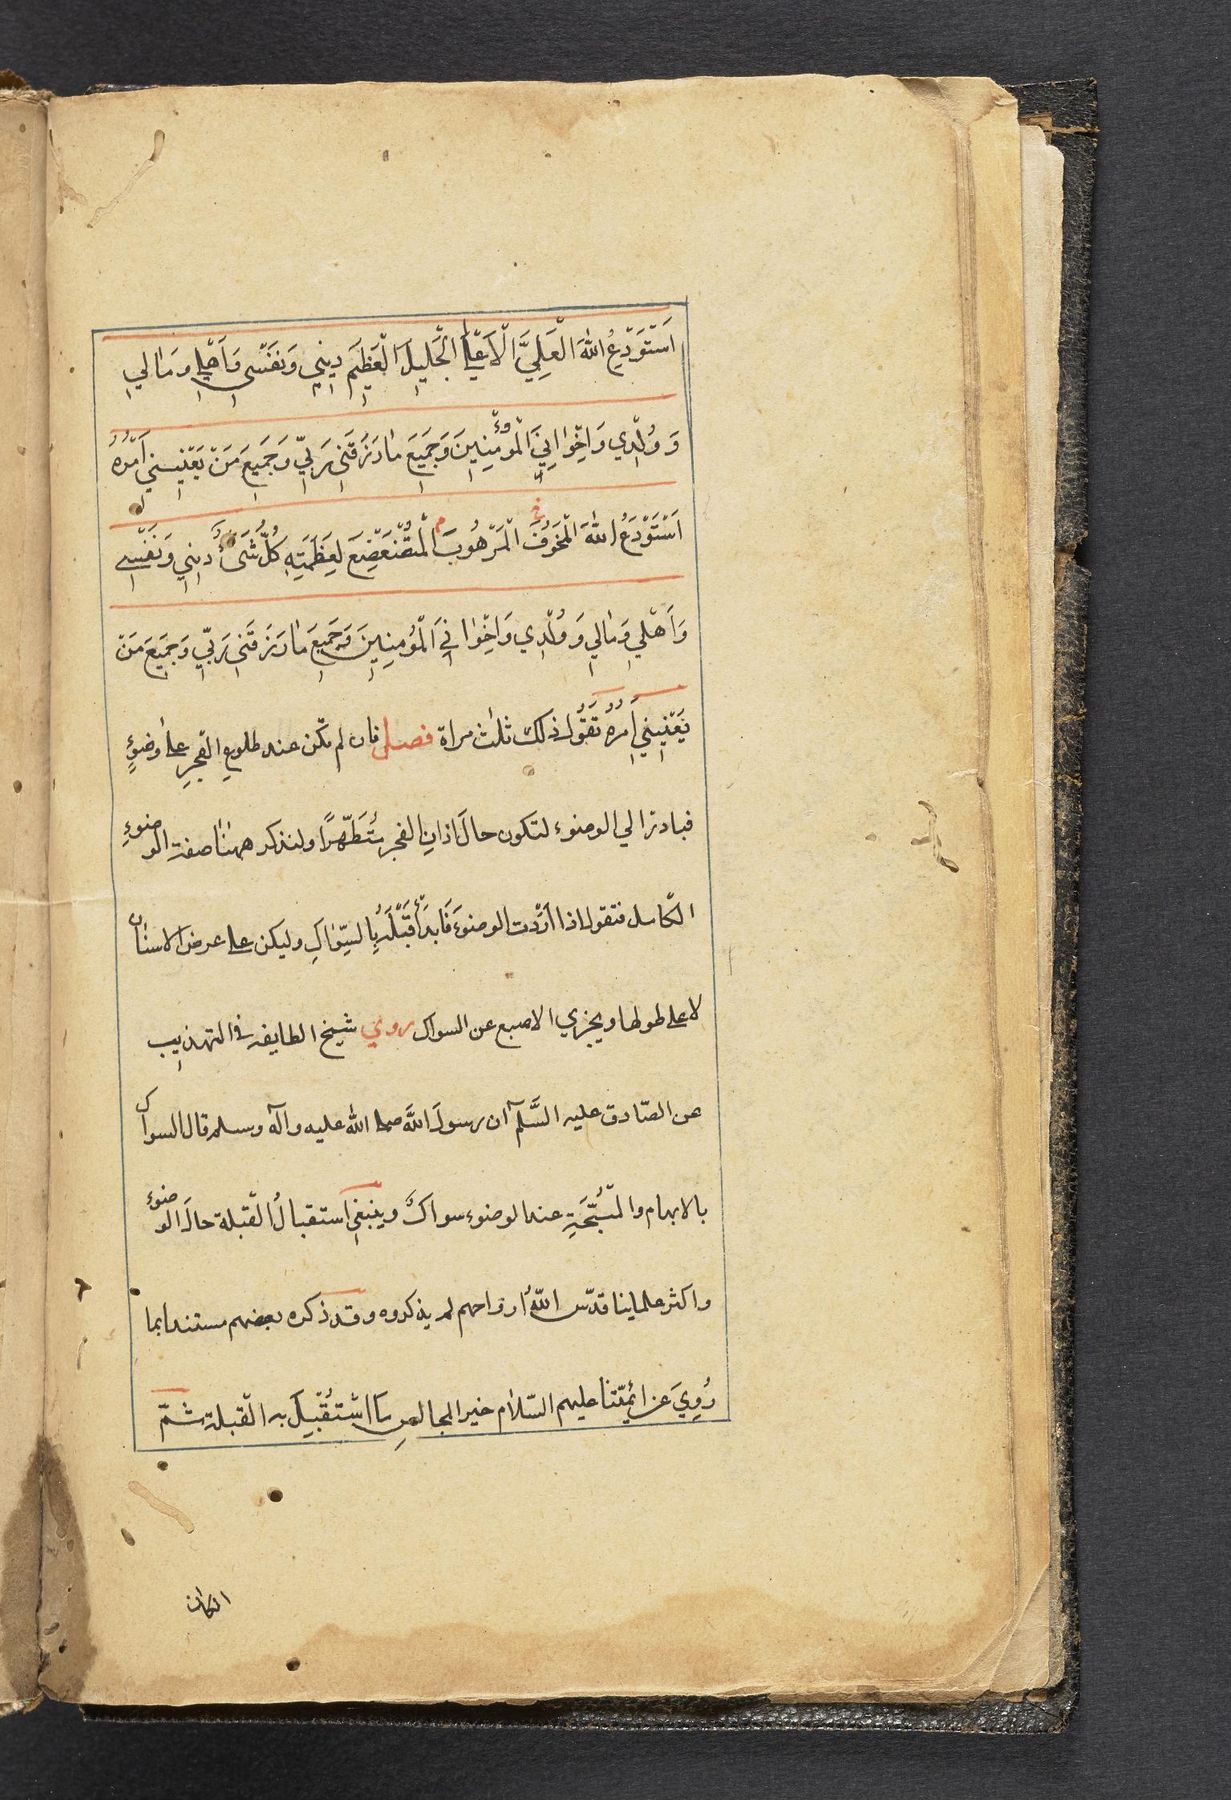 اَسْتَوْدِعُ اللهَ الْعَلِيَّ الْاَعْلَى الْجَلِيلَ الْعَظِيمَ دِينِي وَنَفْسِي وَاَهْلِي وَمَالِي
وَوُلْدِي وَاِخْوٰانِيَ الْمُؤْمِنِينَ وَجَمِيعَ مٰا رَزَقَنِي رَبِّي وَجَمِيعَ مَنْ يَعْنِينِي اَمْرُهُ
اَسْتَوْدِعُ اللهَ الْمَخُوفَ الْمَرْهُوبَ الْمُتَضَعْضِعَ لِعَظَمَتِهِ كُلُّ شَىْءٍ دِينِي وَنَفْسِي
وَاَهْلِي وَمٰالِي وَوُلْدِي وَاِخْوٰانِيَ الْمُؤمِنِينَ وَجَمِيعَ مٰا رَزَقَنِي رَبِّي وَجَمِيعَ مَنْ
يَعْنِينِي اَمْرُهُ تَقُولُ ذلك ثلاث مراة فصل فان لم تكن عند طلوع الفجرِ على وضوءٍ
فبادر الي الوضوء لتكون حالَ اذانِ الفجر مُتَطَهِّرًا ولنذكر ههنا صفة الوضوءِ
الكامل فنقول اذا اَرَدْت الوضوءَ فَابدَأْ قَبْلَهُ بِالسِّواكِ وليكن على عرض الاسنان
لا على طولها ويجزي الاصبع عن السواك روي شيخ الطايفه في التهذيب
عن الصّادق عليه السَّلم ان رسولَ اللهَ صلى الله عليه وآله وسلم قال السواك
بالابهام والمُسَبِّحَةِ عند الوضوء سواكٌ وينبغي استقبالُ القبلة حالَ الوضوء
واكثر علماينا قدّس اللهُ ارواحهم لم يذكروه وقد ذكره بعضهم مستندا بما
رُوِيَ عن ائمّتنا عليهم السّلام خير المجالسِ مَا اسْتُقْبِلَ به القبلة ثمّ